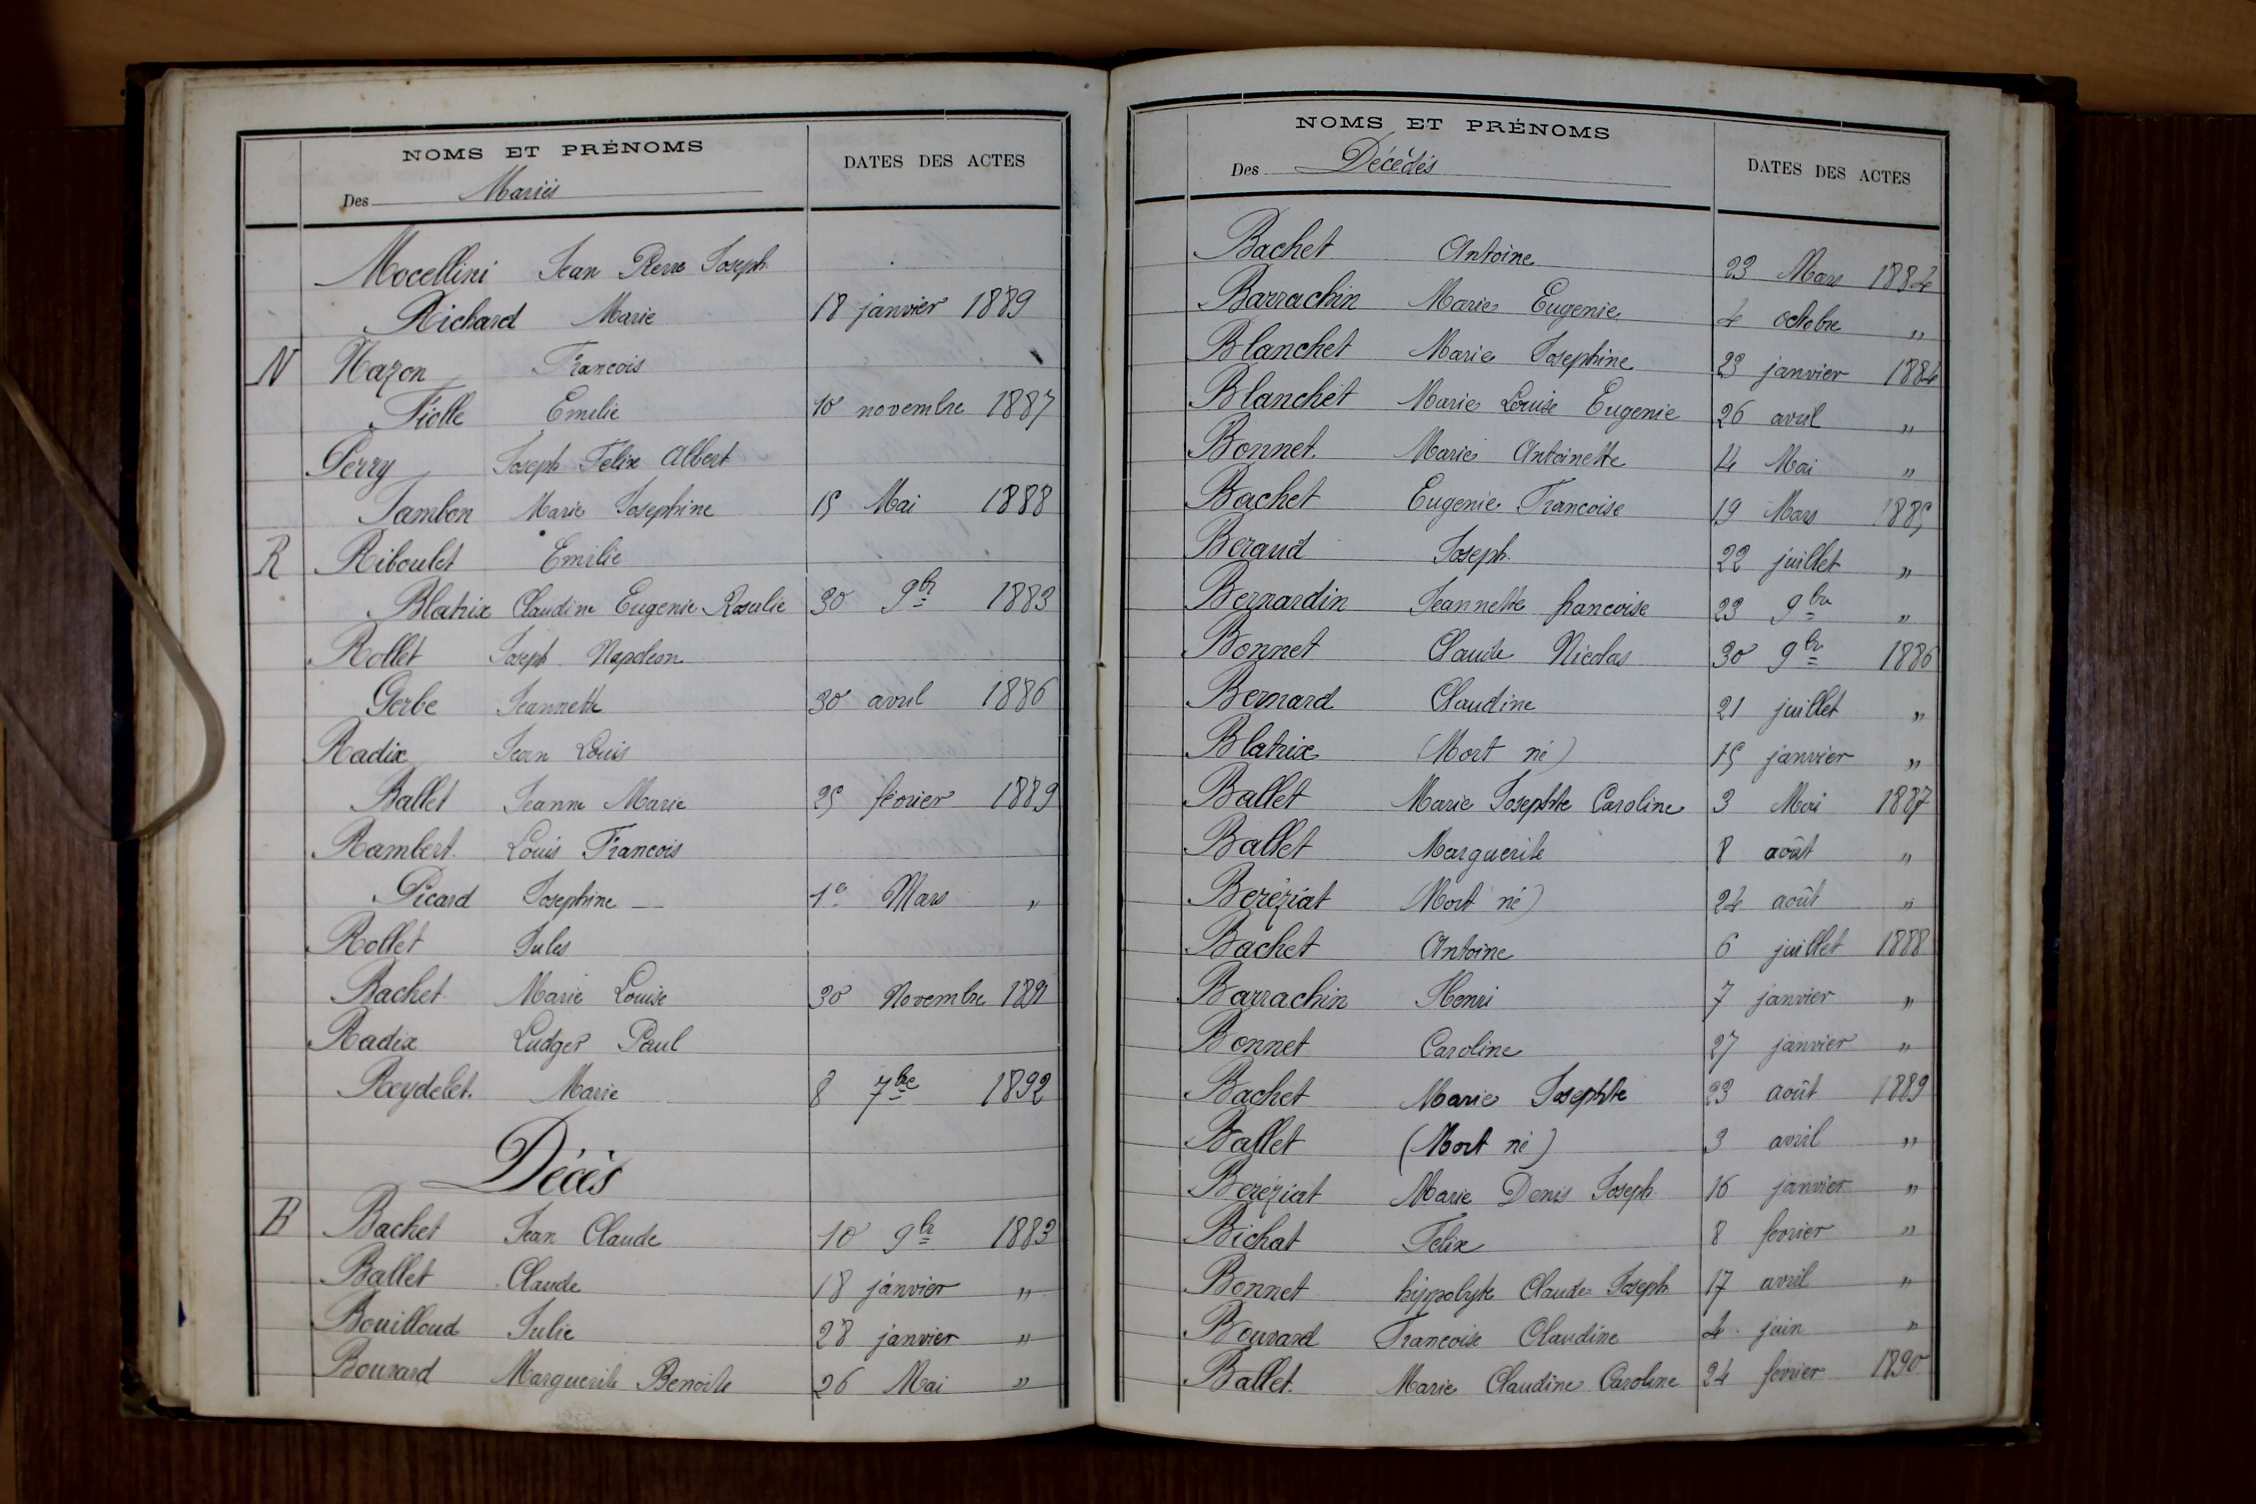 NOMS ET PRÉNOMS
DATES DES ACTES
Des Mariés
Mocellini Jean Pierre Joseph
Richard Marie 18 janvier 1889
N Nazon Francois
Fiolle Emilie 10 novembre 1887
Perry Joseph Felix Albert
Jambon Marie Josephine 15 Mai 1888
R Riboulet Emilie
Blatrix Claudine Eugenie Rosalie 30 9br 1883
Rollet Joseph Napoleon
Gerbe Jeannette 30 avril 1886
Radix Jean Louis
Ballet Jeanne Marie 25 février 1889
Rambert Louis Francois
Picard Josephine 1er Mars "
Rollet Jules
Bachet Marie Louise 30 Novembre 1891
Radix Ludger Paul
Reydelet Marie 8 7bre 1892
Décès
B Bachet Jean Claude 10 9br 1883
Ballet Claude 18 janvier "
Bouilloud Julie 28 janvier "
Bouvard Marguerite Benoite 26 Mai "
NOMS ET PRÉNOMS
DATES DES ACTES
Des Décédés
Bachet Antoine 23 Mars 1884
Barrachin Marie Eugenie 4 octobre "
Blanchet Marie Josephine 23 janvier 1884
Blanchet Marie Louise Eugenie 26 avril "
Bonnet Marie Antoinette 14 Mai "
Bachet Eugenie Francoise 19 Mars 1885
Beraud Joseph 22 juillet "
Bernardin Jeannette francoise 23 9bre "
Bonnet Claude Nicolas 30 9br 1886
Bernard Claudine 21 juillet "
Blatrix (Mort né) 15 janvier "
Ballet Marie Josephte Caroline 3 Mai 1887
Ballet Marguerite 8 août "
Beréziat Mort né) 24 août "
Bachet Antoine 6 juillet 1888
Barrachin Henri 7 janvier "
Bonnet Caroline 27 janvier "
Bachet Marie Josephte 23 août 1889
Ballet (Mort né) 3 avril "
Beréziat Marie Denis Joseph 16 janvier "
Bichat Felix 8 fevrier "
Bonnet hippolyte Claude Joseph 17 avril "
Bouvard Francoise Claudine 4 juin "
Ballet Marie Claudine Caroline 24 fevrier 1890